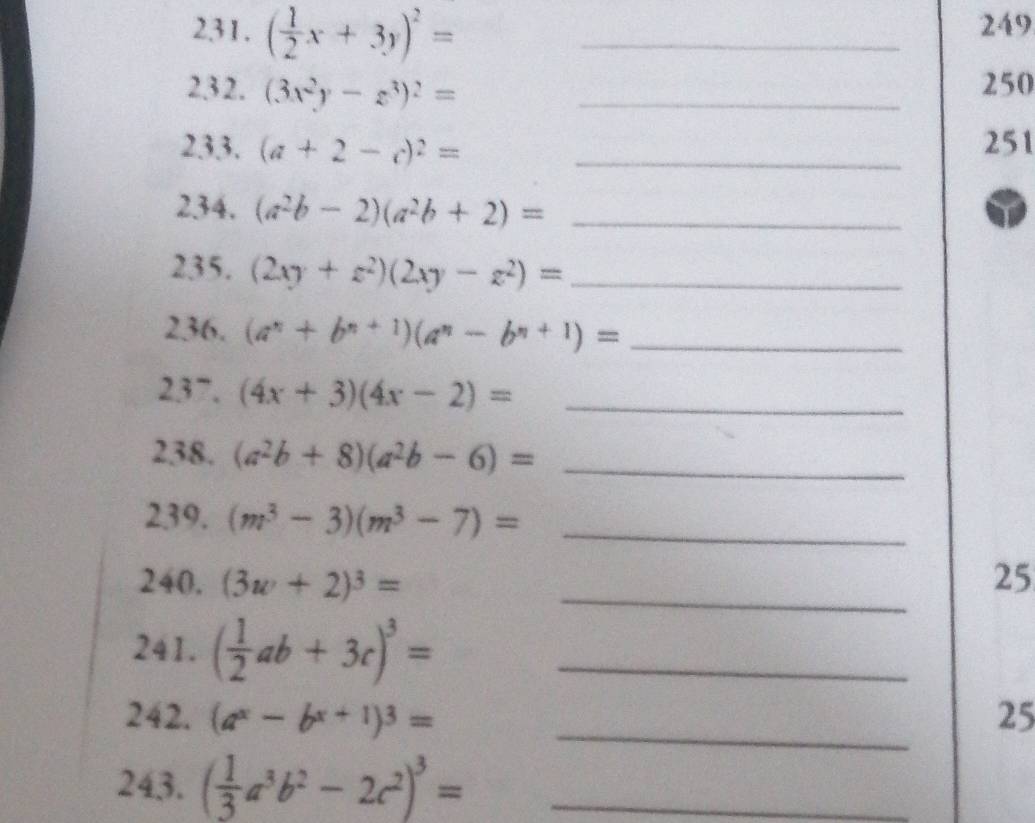 231. (1/2 x + 3y)² = ____________ 249
232. (3x²y − z³)² = ____________ 250
233. (a + 2 − c)² = ____________ 251
234. (a²b − 2)(a²b + 2) = ____________
235. (2xy + z²)(2xy − z²) = ____________
236. (aⁿ + bⁿ ⁺ ¹)(aⁿ − bⁿ ⁺ ¹) = ____________
237. (4x + 3)(4x − 2) = ____________
238. (a²b + 8)(a²b − 6) = ____________
239. (m³ − 3)(m³ − 7) = ____________
240. (3w + 2)³ = ____________ 25
241. (1/2 ab + 3c)³ = ____________
242. (aˣ − bˣ ⁺ ¹)³ = ____________ 25
243. (1/3 a³b² − 2c²)³ = ____________